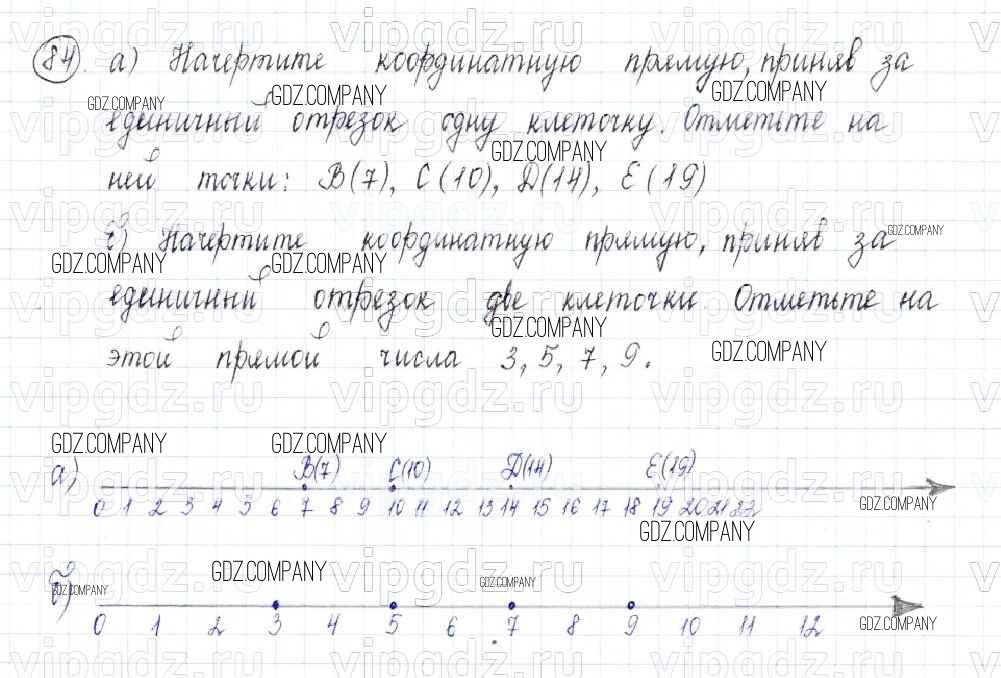 84. а) Начертите координатную прямую, приняв за
единичный отрезок одну клеточку. Отметьте на
ней точки: B(7), C(10), D(14), E(19)
б) Начертите координатную прямую, приняв за
единичный отрезок две клеточки. Отметьте на
этой прямой числа 3, 5, 7, 9.
а) B(7) C(10) D(14) E(19)
0 1 2 3 4 5 6 7 8 9 10 11 12 13 14 15 16 17 18 19 20 21 22
б)
0 1 2 3 4 5 6 7 8 9 10 11 12
GDZ.COMPANY
vipgdz.ru